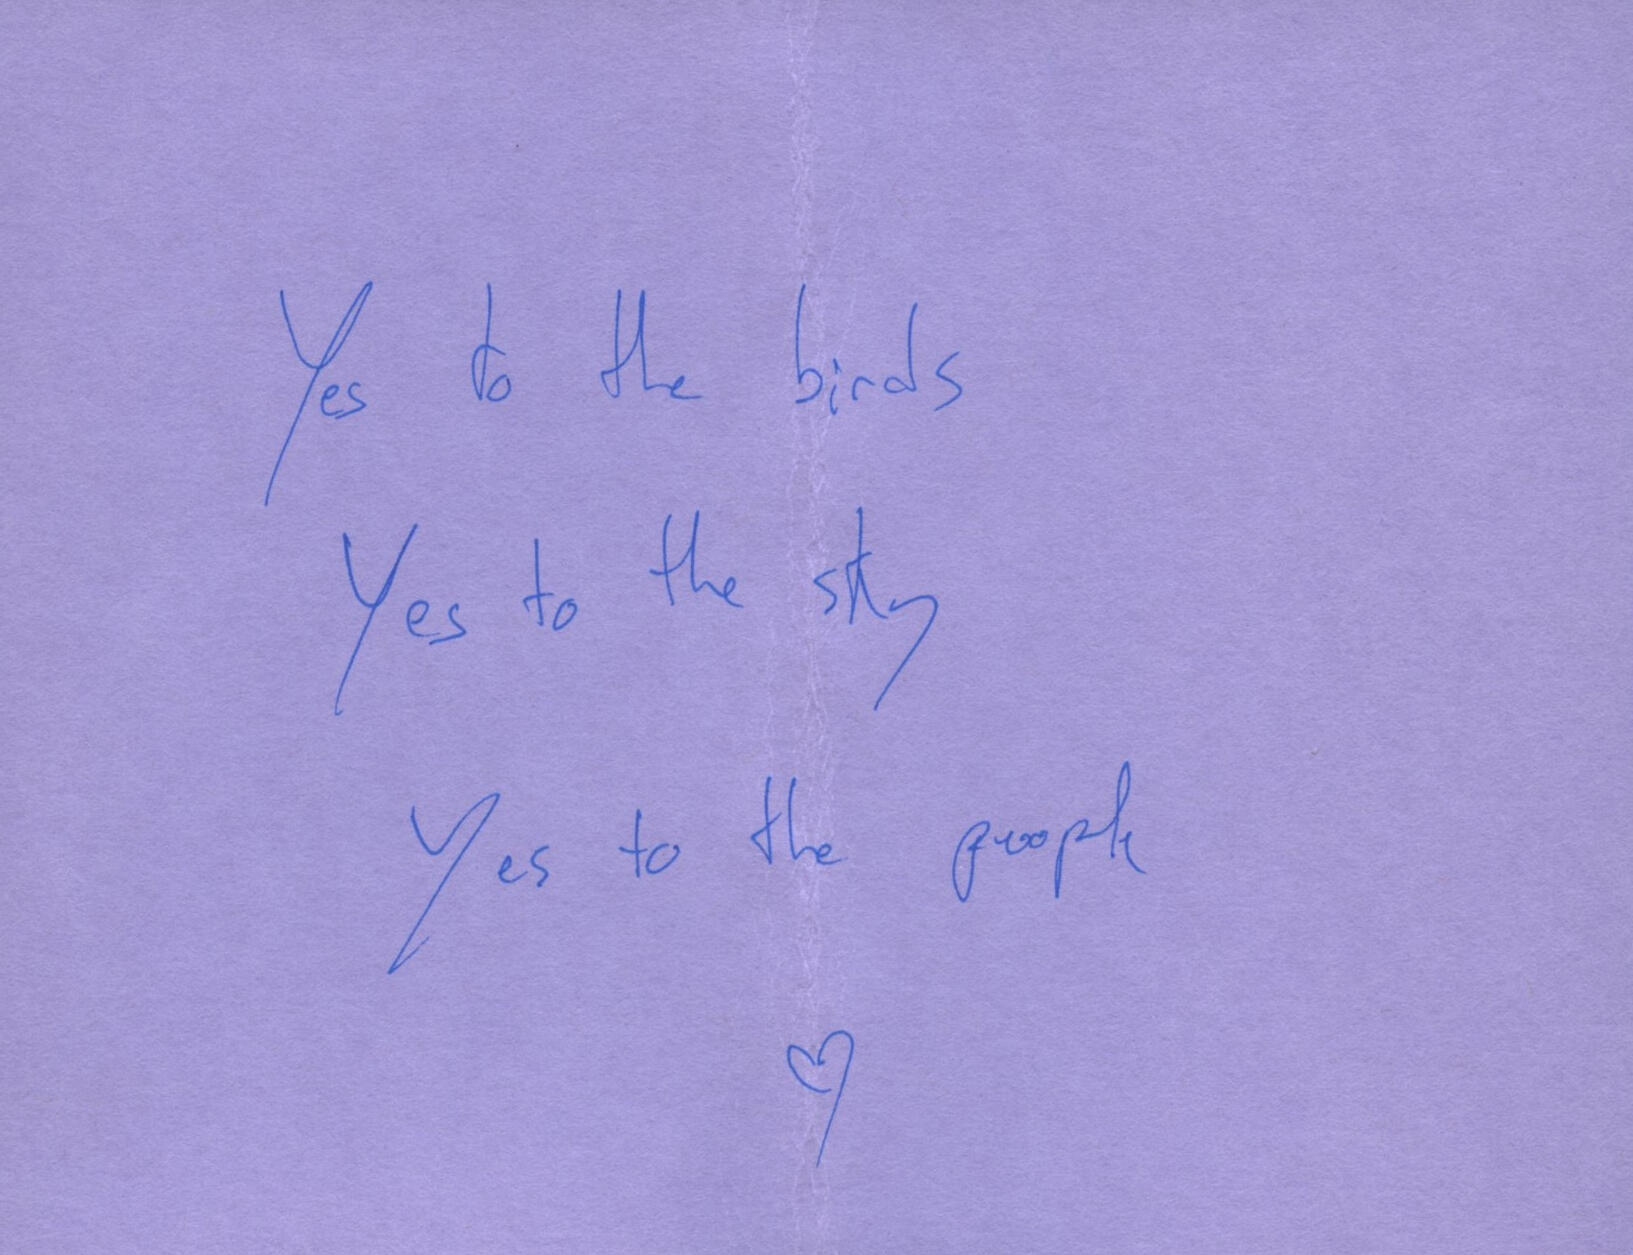 Yes to the birds
Yes to the sky
Yes to the people
♡